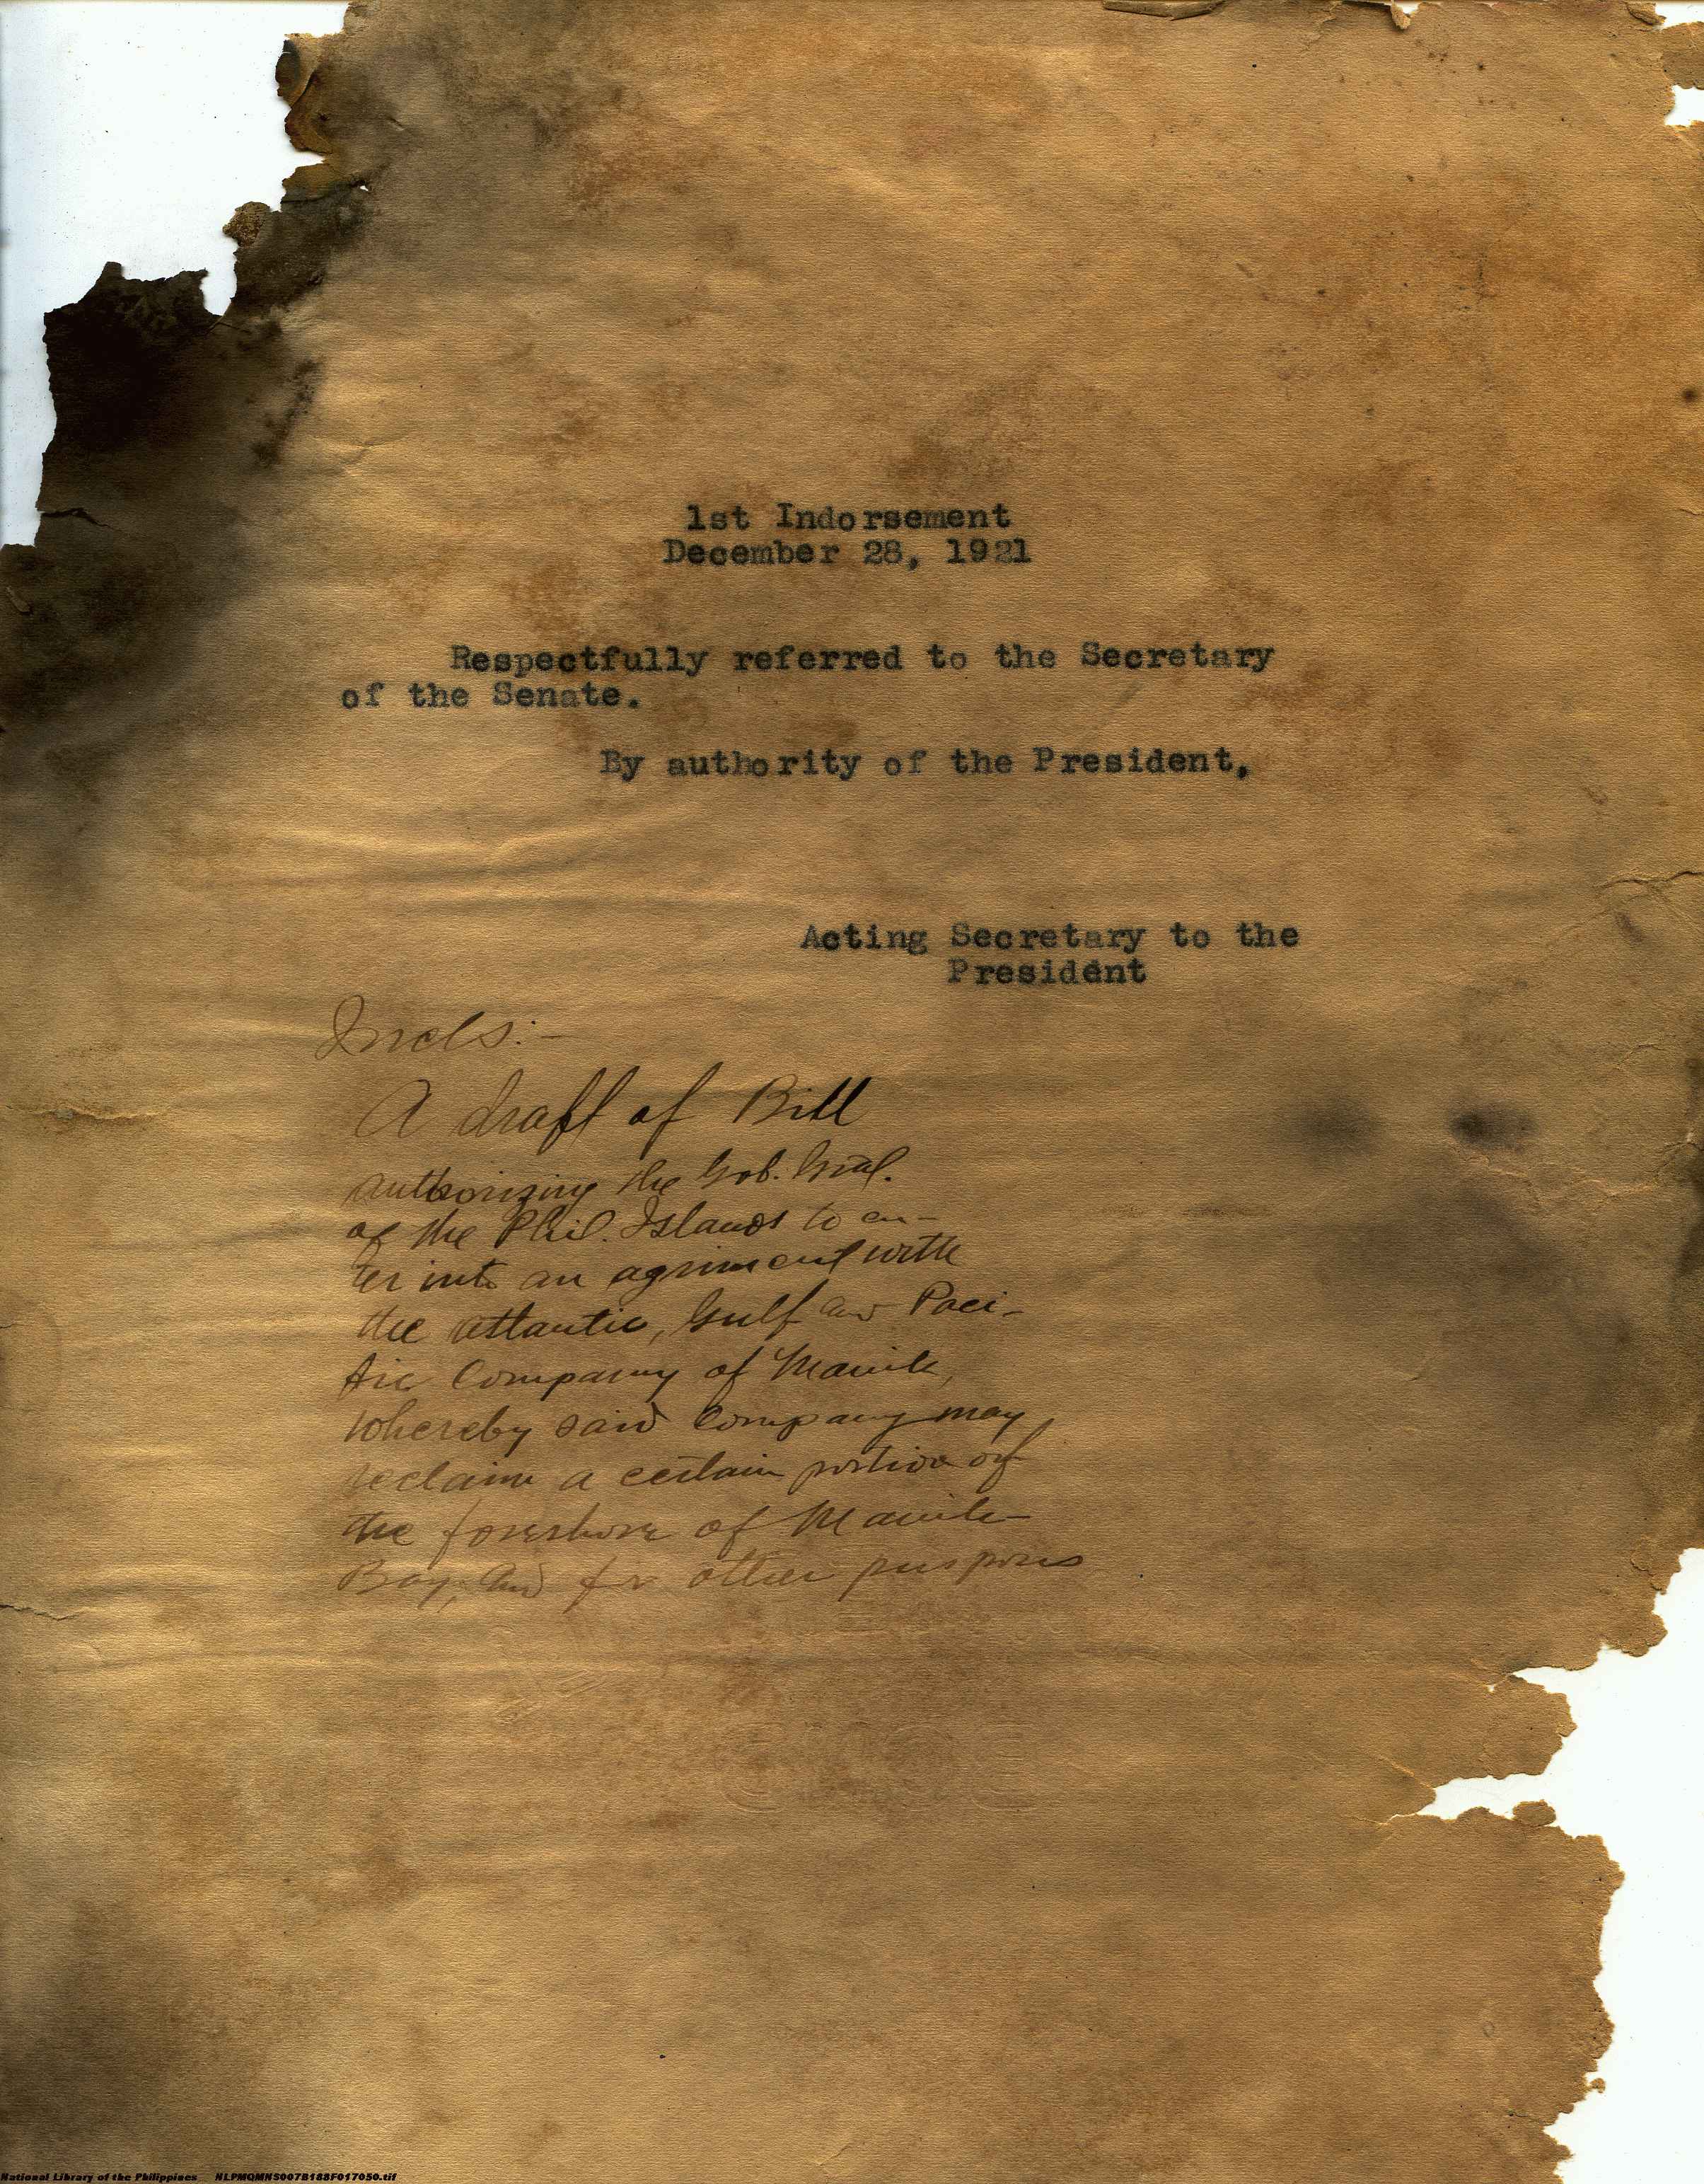 1st Indorsement
December 28, 1921
Respectfully referred to the Secretary
of the Senate.
By authority of the President,
Acting Secretary to the
President
Incls:-
A draft of Bill
authorizing the Gob. Gral.
of the Phil. Islands to en-
ter into an agriment with
the Atlantic, Gulf and Paci-
fic Company of Manila,
whereby said Company may
reclaim a certain portion of
the foreshore of Manila
Bay, and for other purposes
National Library of the Philippines NLPMQMNS007B188F017050.tif